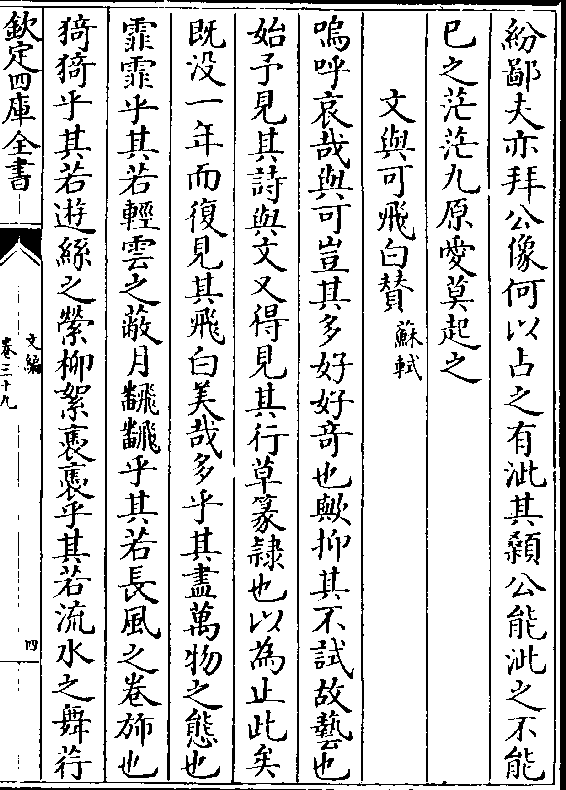 紛鄙夫亦拜公像何以占之有泚其顙公能泚之不能
已之茫茫九原愛莫起之
文與可飛白賛 蘇軾
嗚呼哀哉與可豈其多好好竒也歟抑其不試故藝也
始予見其詩與文又得見其行草篆隷也以為止此矣
既没一年而復見其飛白美哉多乎其盡萬物之態也
霏霏乎其若輕雲之蔽月飜飜乎其若長風之卷斾也
猗猗乎其若遊絲之縈柳絮裊裊乎其若流水之舞荇
欽定四庫全書
文編
卷三十九
四